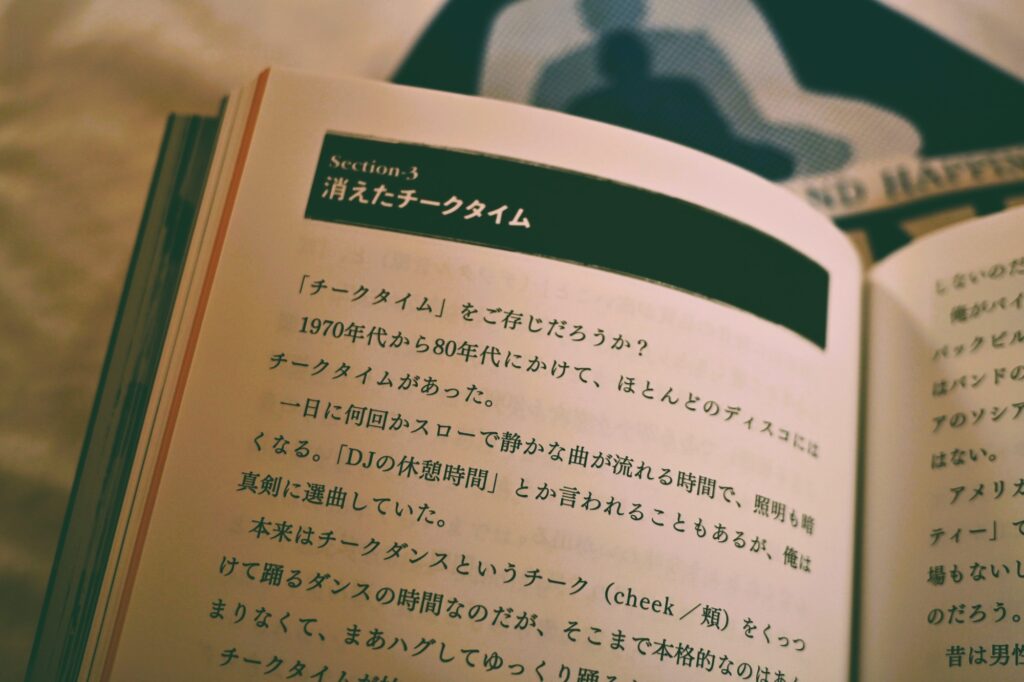 Section-3
消えたチークタイム
「チークタイム」をご存じだろうか？
1970年代から80年代にかけて、ほとんどのディスコには
チークタイムがあった。
一日に何回かスローで静かな曲が流れる時間で、照明も暗
くなる。「DJの休憩時間」とか言われることもあるが、俺は
真剣に選曲していた。
本来はチークダンスというチーク（cheek／頬）をくっつ
けて踊るダンスの時間なのだが、そこまで本格的なのはあ
まりなくて、まあハグしてゆっくり踊る
チークタイムが
しないのだ
俺がバイ
バックビル
はバンドの
アのソシア
はない。
アメリカ
ティー」で
場もないし
のだろう。
昔は男性
ND HAPPIN